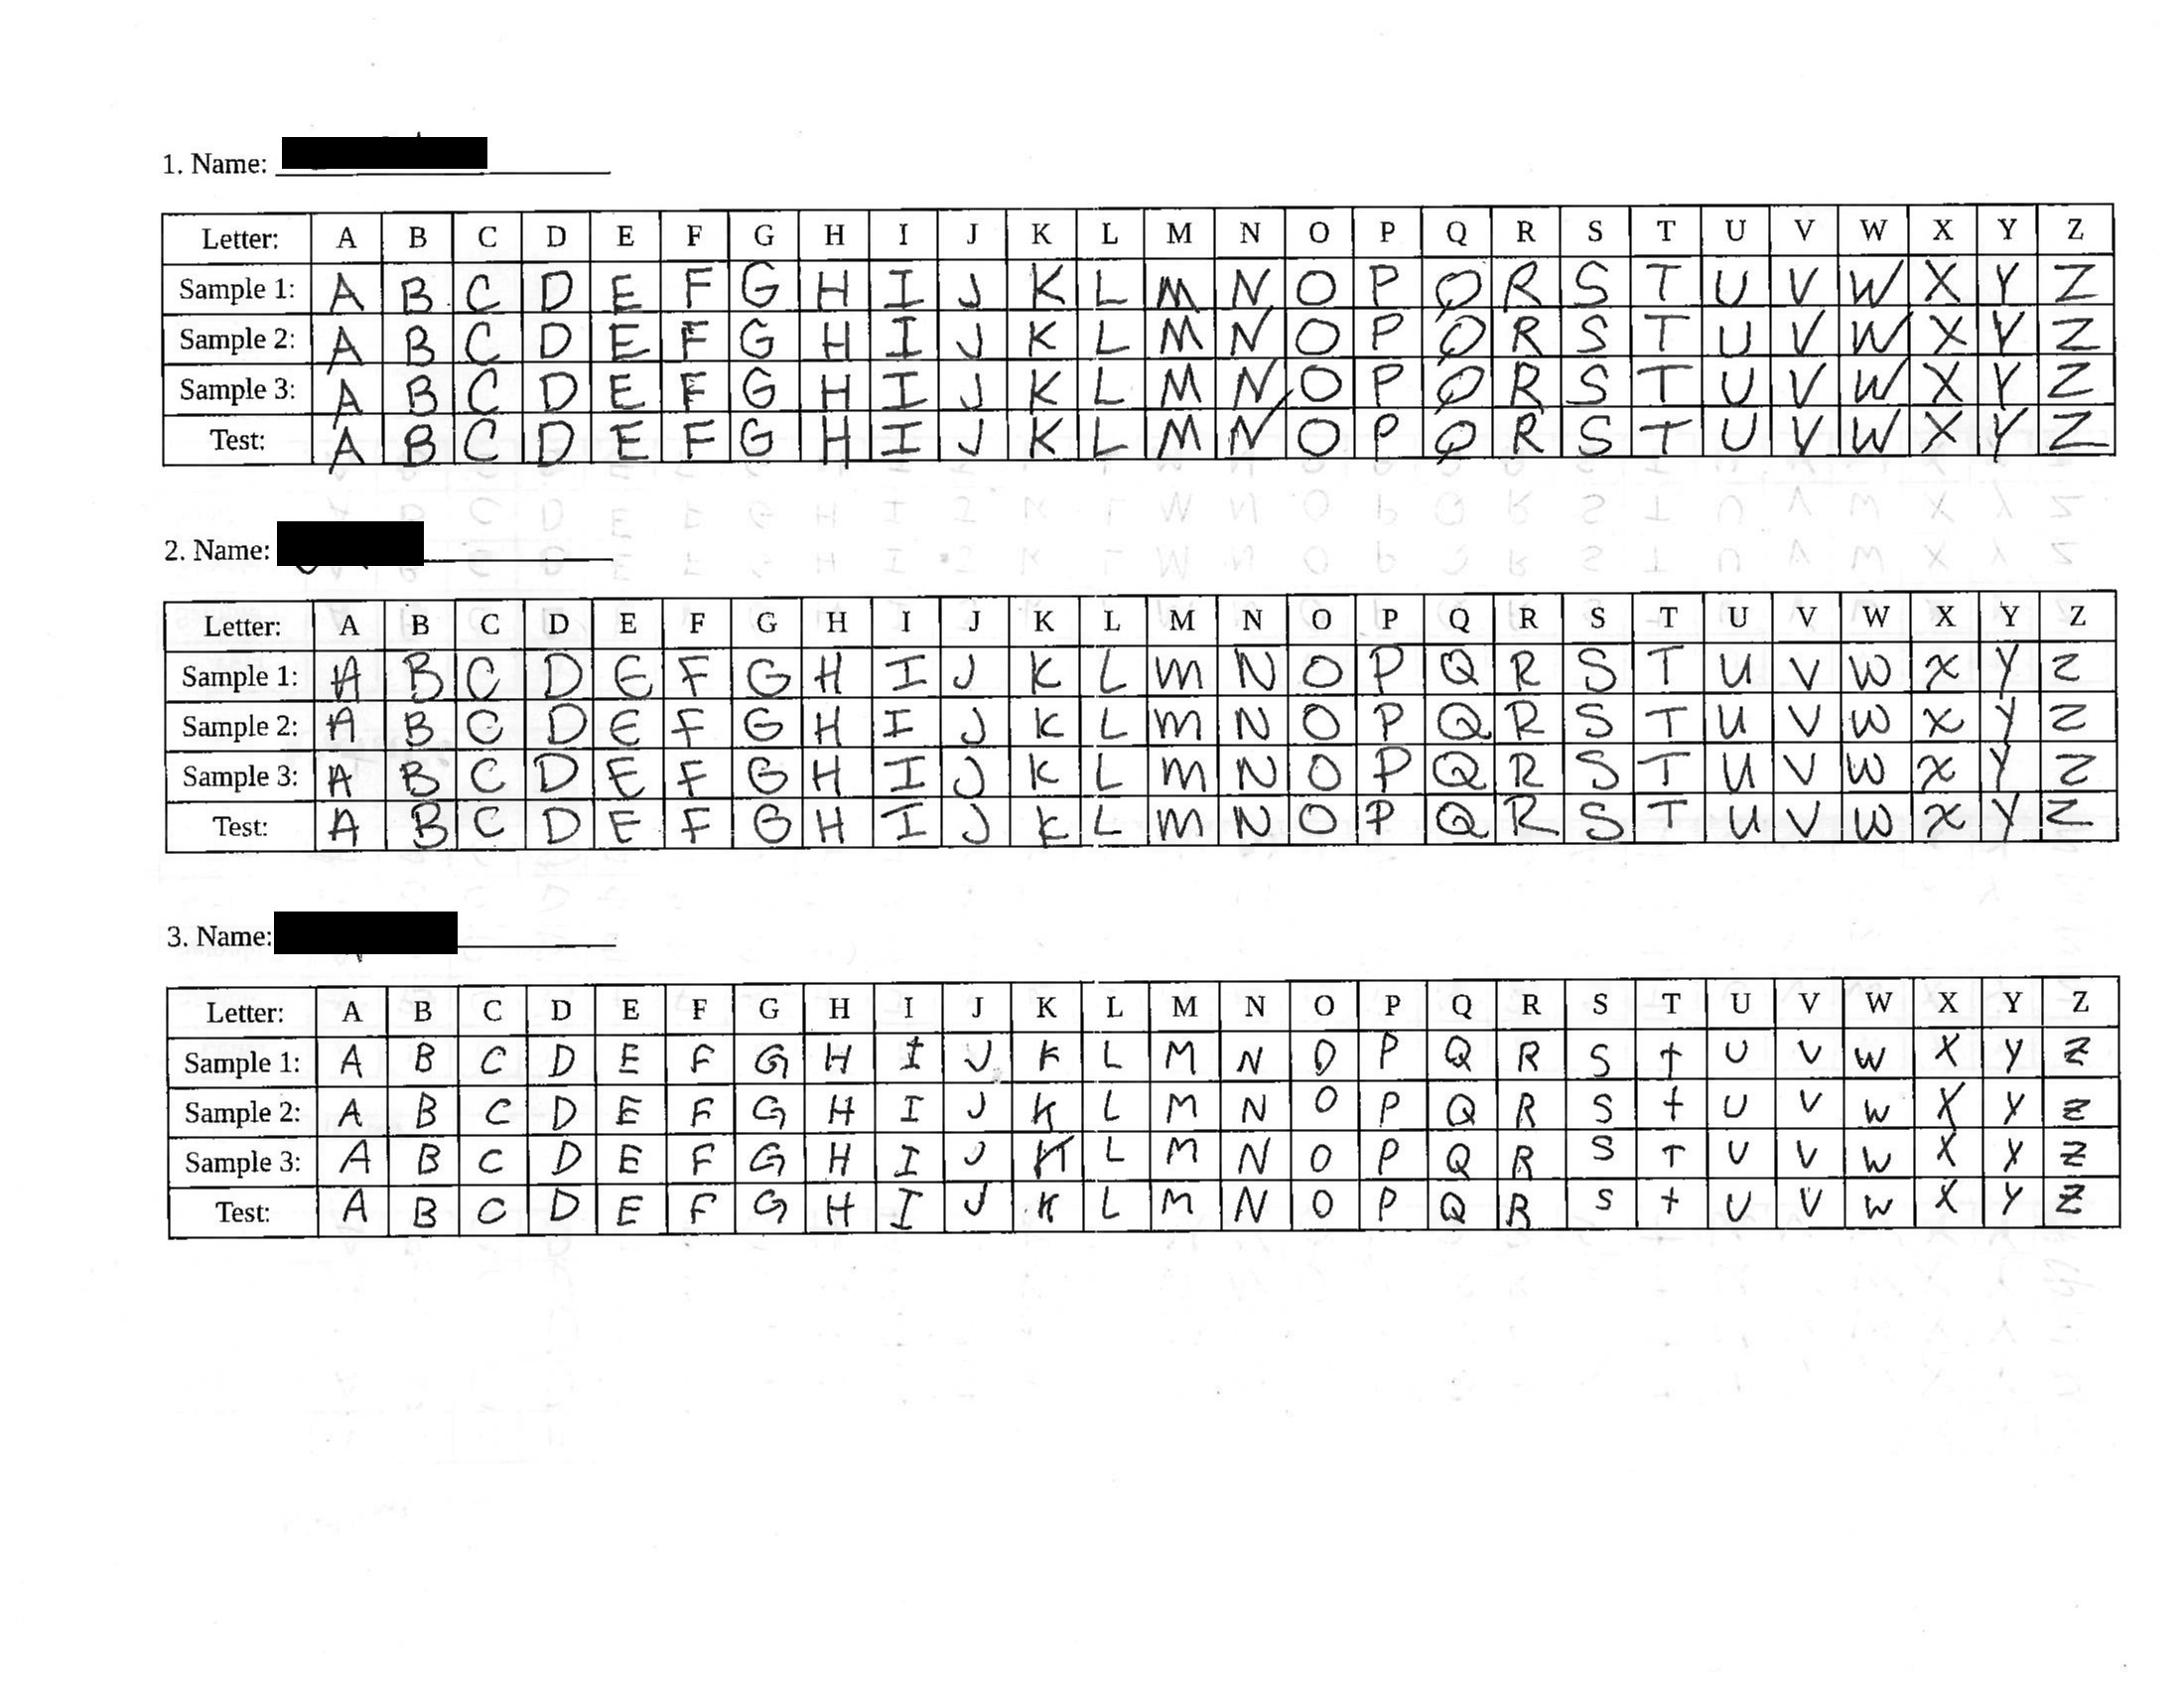 1. Name:
Letter: A B C D E F G H I J K L M N O P Q R S T U V W X Y Z
Sample 1: A B C D E F G H I J K L M N O P Q R S T U V W X Y Z
Sample 2: A B C D E F G H I J K L M N O P Q R S T U V W X Y Z
Sample 3: A B C D E F G H I J K L M N O P Q R S T U V W X Y Z
Test: A B C D E F G H I J K L M N O P Q R S T U V W X Y Z
2. Name:
Letter: A B C D E F G H I J K L M N O P Q R S T U V W X Y Z
Sample 1: A B C D E F G H I J K L M N O P Q R S T U V W X Y Z
Sample 2: A B C D E F G H I J K L M N O P Q R S T U V W X Y Z
Sample 3: A B C D E F G H I J K L M N O P Q R S T U V W X Y Z
Test: A B C D E F G H I J K L M N O P Q R S T U V W X Y Z
3. Name:
Letter: A B C D E F G H I J K L M N O P Q R S T U V W X Y Z
Sample 1: A B C D E F G H I J K L M N O P Q R S T U V W X Y Z
Sample 2: A B C D E F G H I J K L M N O P Q R S T U V W X Y Z
Sample 3: A B C D E F G H I J K L M N O P Q R S T U V W X Y Z
Test: A B C D E F G H I J K L M N O P Q R S T U V W X Y Z